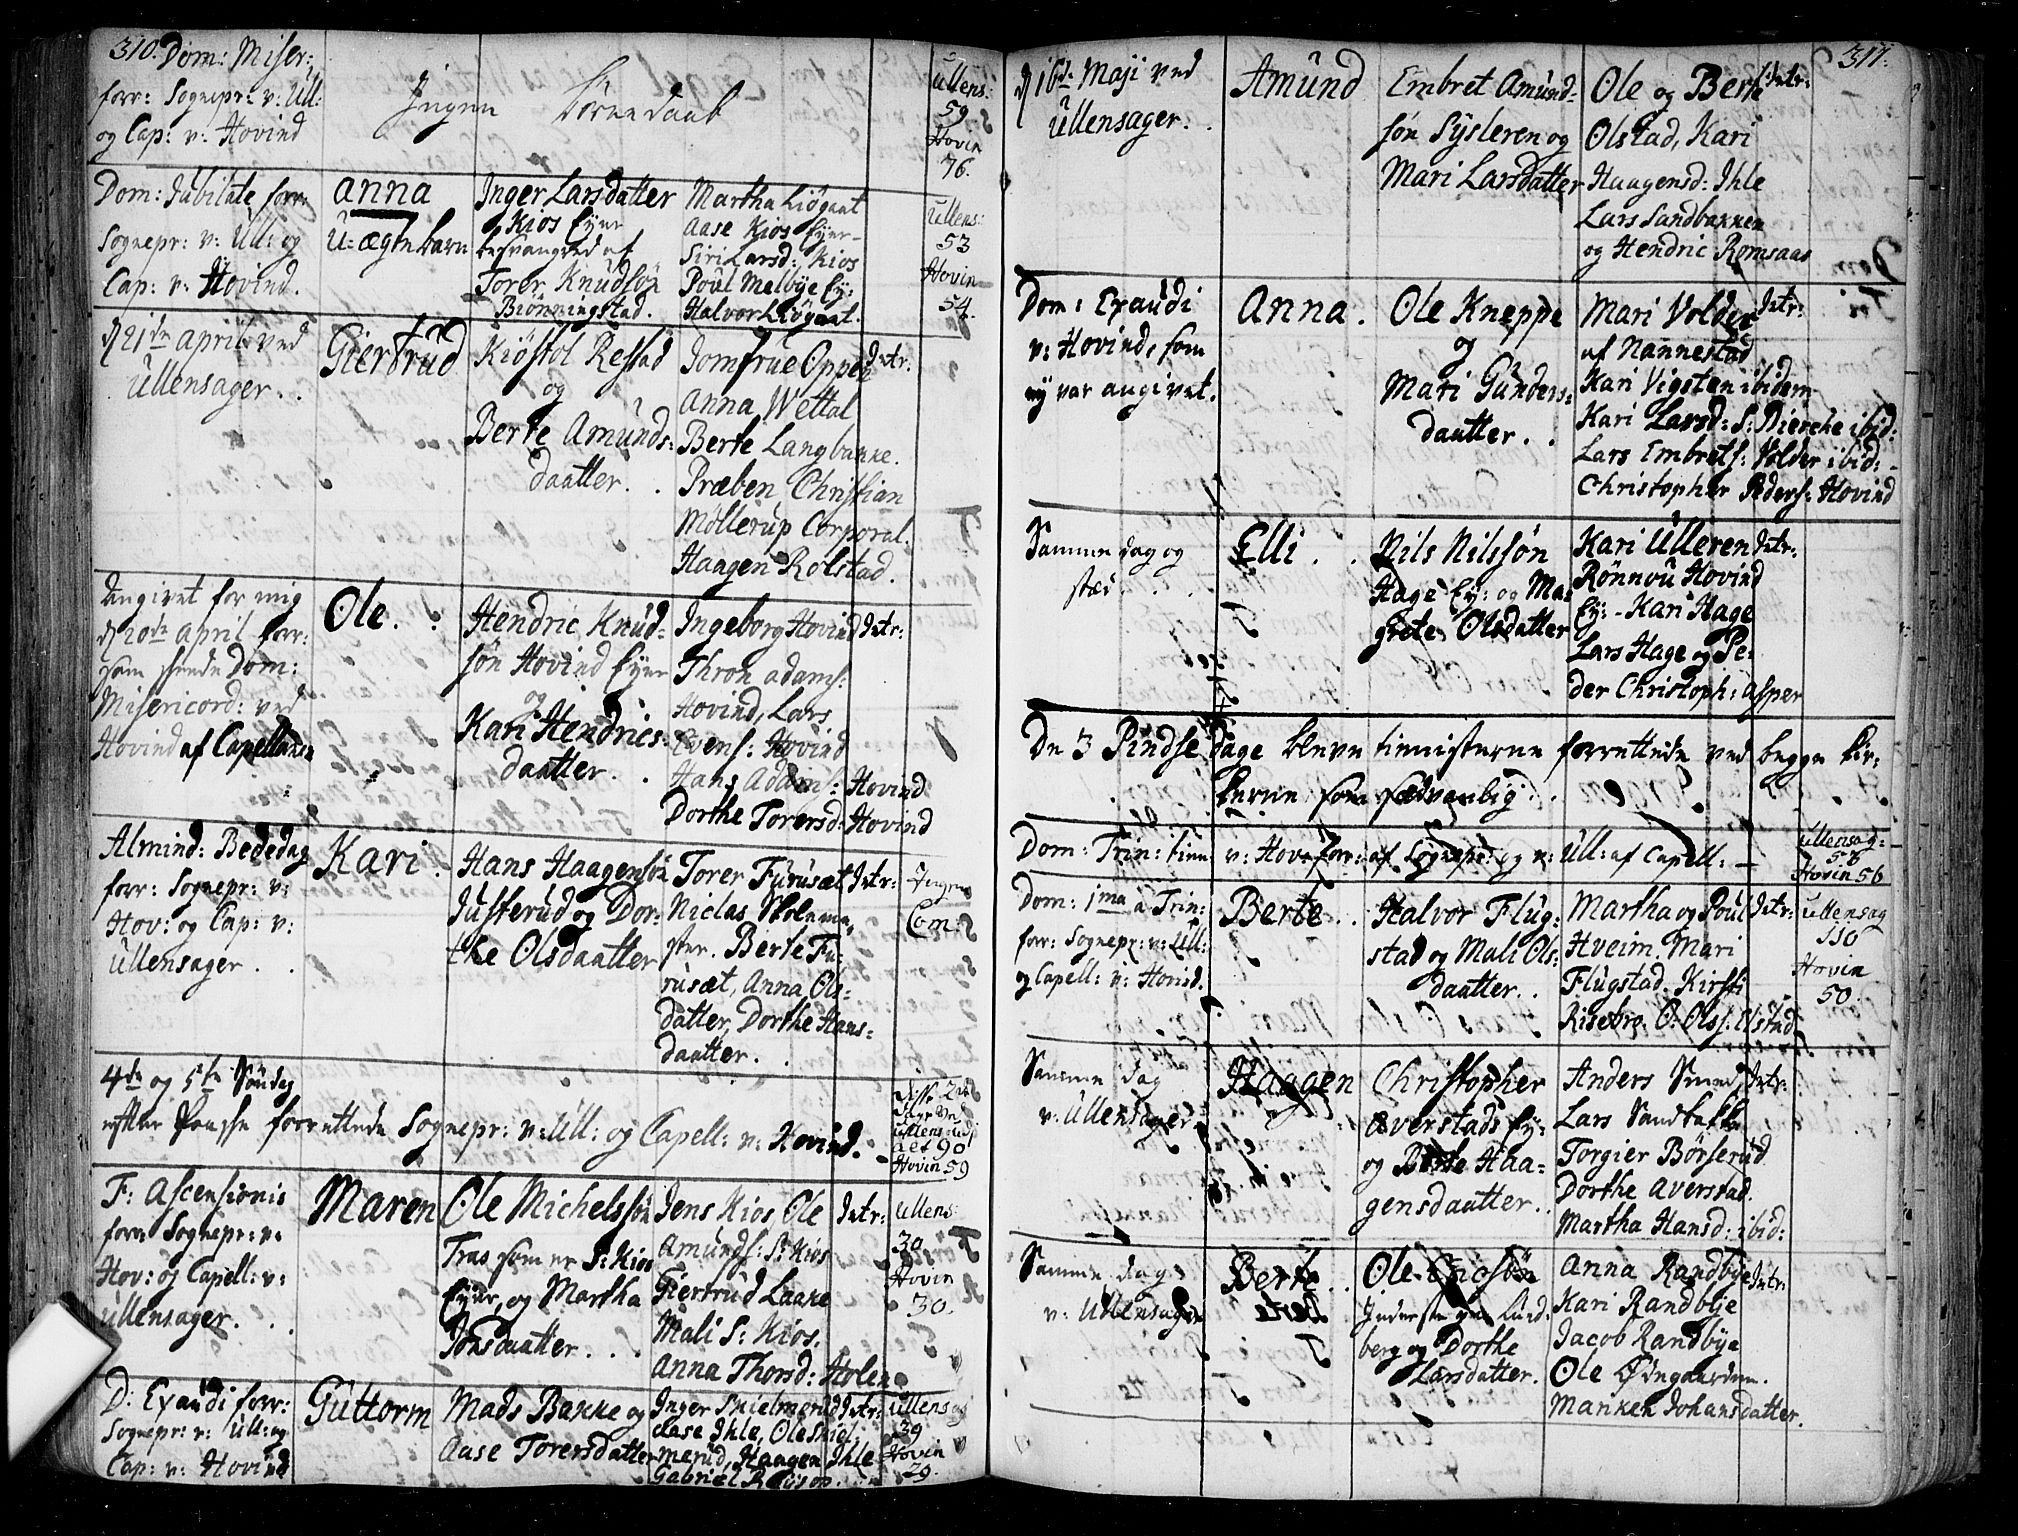 310. Dom: Miser:
forr: Sognepr: v: Ull:
og Cap: v: Hovind
Ingen
Ullens:
59
Hovin
76.
Dom: Jubilate forr:
Sognepr: v: Ull: og
Cap: v: Hovind.
Anna
U-ægte barn
Inger Larsdatter
Kios Eyer
besvangred af
Torer Knudsøn
Biønningstad.
Martha Liøgaat
Aase Kios Eyer-
Siri Larsd: Kios
Poul Melbye Ey:
Halvor Liøgaat.
Ullens:
53
Hovin
54.
d 21de April ved
Ullensager..
Giertrud
Kiøstol Restad
og
Berte Amunds:
daatter..
Jomfrue Oppen
Anna Wettal
Berte Langbakke.
Præben Christian
Møllerup Corporal.
Haagen Rolstad.
Intr:
Angivet for mig
d 20de April forr:
som skeede Dom:
Misericord: ved
Hovind af Capellanen
Ole.
Hendric Knud-
søn Hovind Eyer
og
Kari Hendrics:
daatter..
Ingeborg Hovind
Thron Adams:
Hovind, Lars
Evens: Hovind
Hans Adams: Hovind
Dorthe Torersd: Hovind
Intr:
Almind: Bededag
forr: Sognepr: v:
Hov: og Cap: v:
Ullensager..
Kari.
Hans Haagensøn
Justerud og Dor:
the Olsdaatter
Torer Furusæt
Niclas Skolema,
ster. Berte Fu:
rusæt, Anna Ols:
datter, Dorthe Hans-
daatter..
Intr:
Ingen
Com:
4de og 5te Søndag
efter Paaske forrettede Sognepr: v: Ull: og Capell: v: Hovind.
Ullens
90
Hovin 59
F: Ascensionis
forr: Sognepr: v:
Hov: og Capell: v:
Ullensager...
Maren
Ole Michelssøn
Tras som er S: Kios
Eyer, og Martha
Jonsdaatter...
Jens Kios, Ole
Amunds: S: Kios
Giertrud Laake
Mali S: Kios.
Anna Thorsd: Holen
Intr:
Ullens
30
Hovin
30.
D: Exaudi forr:
Sognepr: v: Ull: og
Cap: v: Hovind
Guttorm
Mads Bakke og
Aase Torersdatter
Inger Skielmerud
Aase Ihle, Ole Skiel
merud, Haagen Ihle
Gabriel
Intr:
Ullensag
39
Hovin
29.
311.
d 16de Maji ved
Ullensager..
Amund
Embret Amund-
søn Sysleren og
Mari Larsdatter
Ole og Berte
Olstad, Kari
Haagensd: Ihle
Lars Sandbakken
og Hendric Romsaas
Intr:
Dom: Exaudi
v: Hovind, som
ey var angivet.
Anna.
Ole Kneppe
og
Mari Gunders:
daatter..
Mari Volder
af Nannestad
Kari Vigsten ibidem
Kari Larsd: S: Bierche ibid:
Lars Embrets: Volder ibid:
Christopher Peders: Hovind
Intr:
Samme dag og
stæd
Elli..
Nils Nilssøn
Hage Ey: og Ma:
grete Olsdatter
Kari Ulleren
Rønnvu Hovind
Ey:- Kari Hage
Lars Hage og Pe:
der Christoph: Asper
Intr:
De 3 Pindse dage bleve tienisterne forrettede ved begge Kir:
kerne som sædvanlig..
Dom: Trin: tien v: Hov: forr: af Sognepr: og v: Ull: af Capell:
Ullensag:
58
Hovin 56
Dom: 1ma à Trin:
forr: Sognepr: v: Ull:
og Capell: v: Hovind.
Berte..
Halvor Flug-
stad og Mali Ols:
daatter..
Martha og Poul
Hveim. Mari
Flugstad. Kirsti
Risebro. O: Ols: Olstad
Intr:
Ullensag
110
Hovin
50.
Samme dag
v: Ullensager
Haagen
Christopher
Averstads Ey:
og Berte Haa-
gensdaatter..
Anders
Lars Sandbakke
Torgier Børserud
Dorthe Averstad.
Martha Hansd: ibid:
Intr:
Samme dag
v: Ullensager
Berte
Berte
Ole
Inderste paa Lund-
berg og Dorthe
Larsdatter.
Anna Randbye
Kari Randbye
Jacob Randbye
Ole Ødegaarden.
Manken Johansdatter.
Intr: